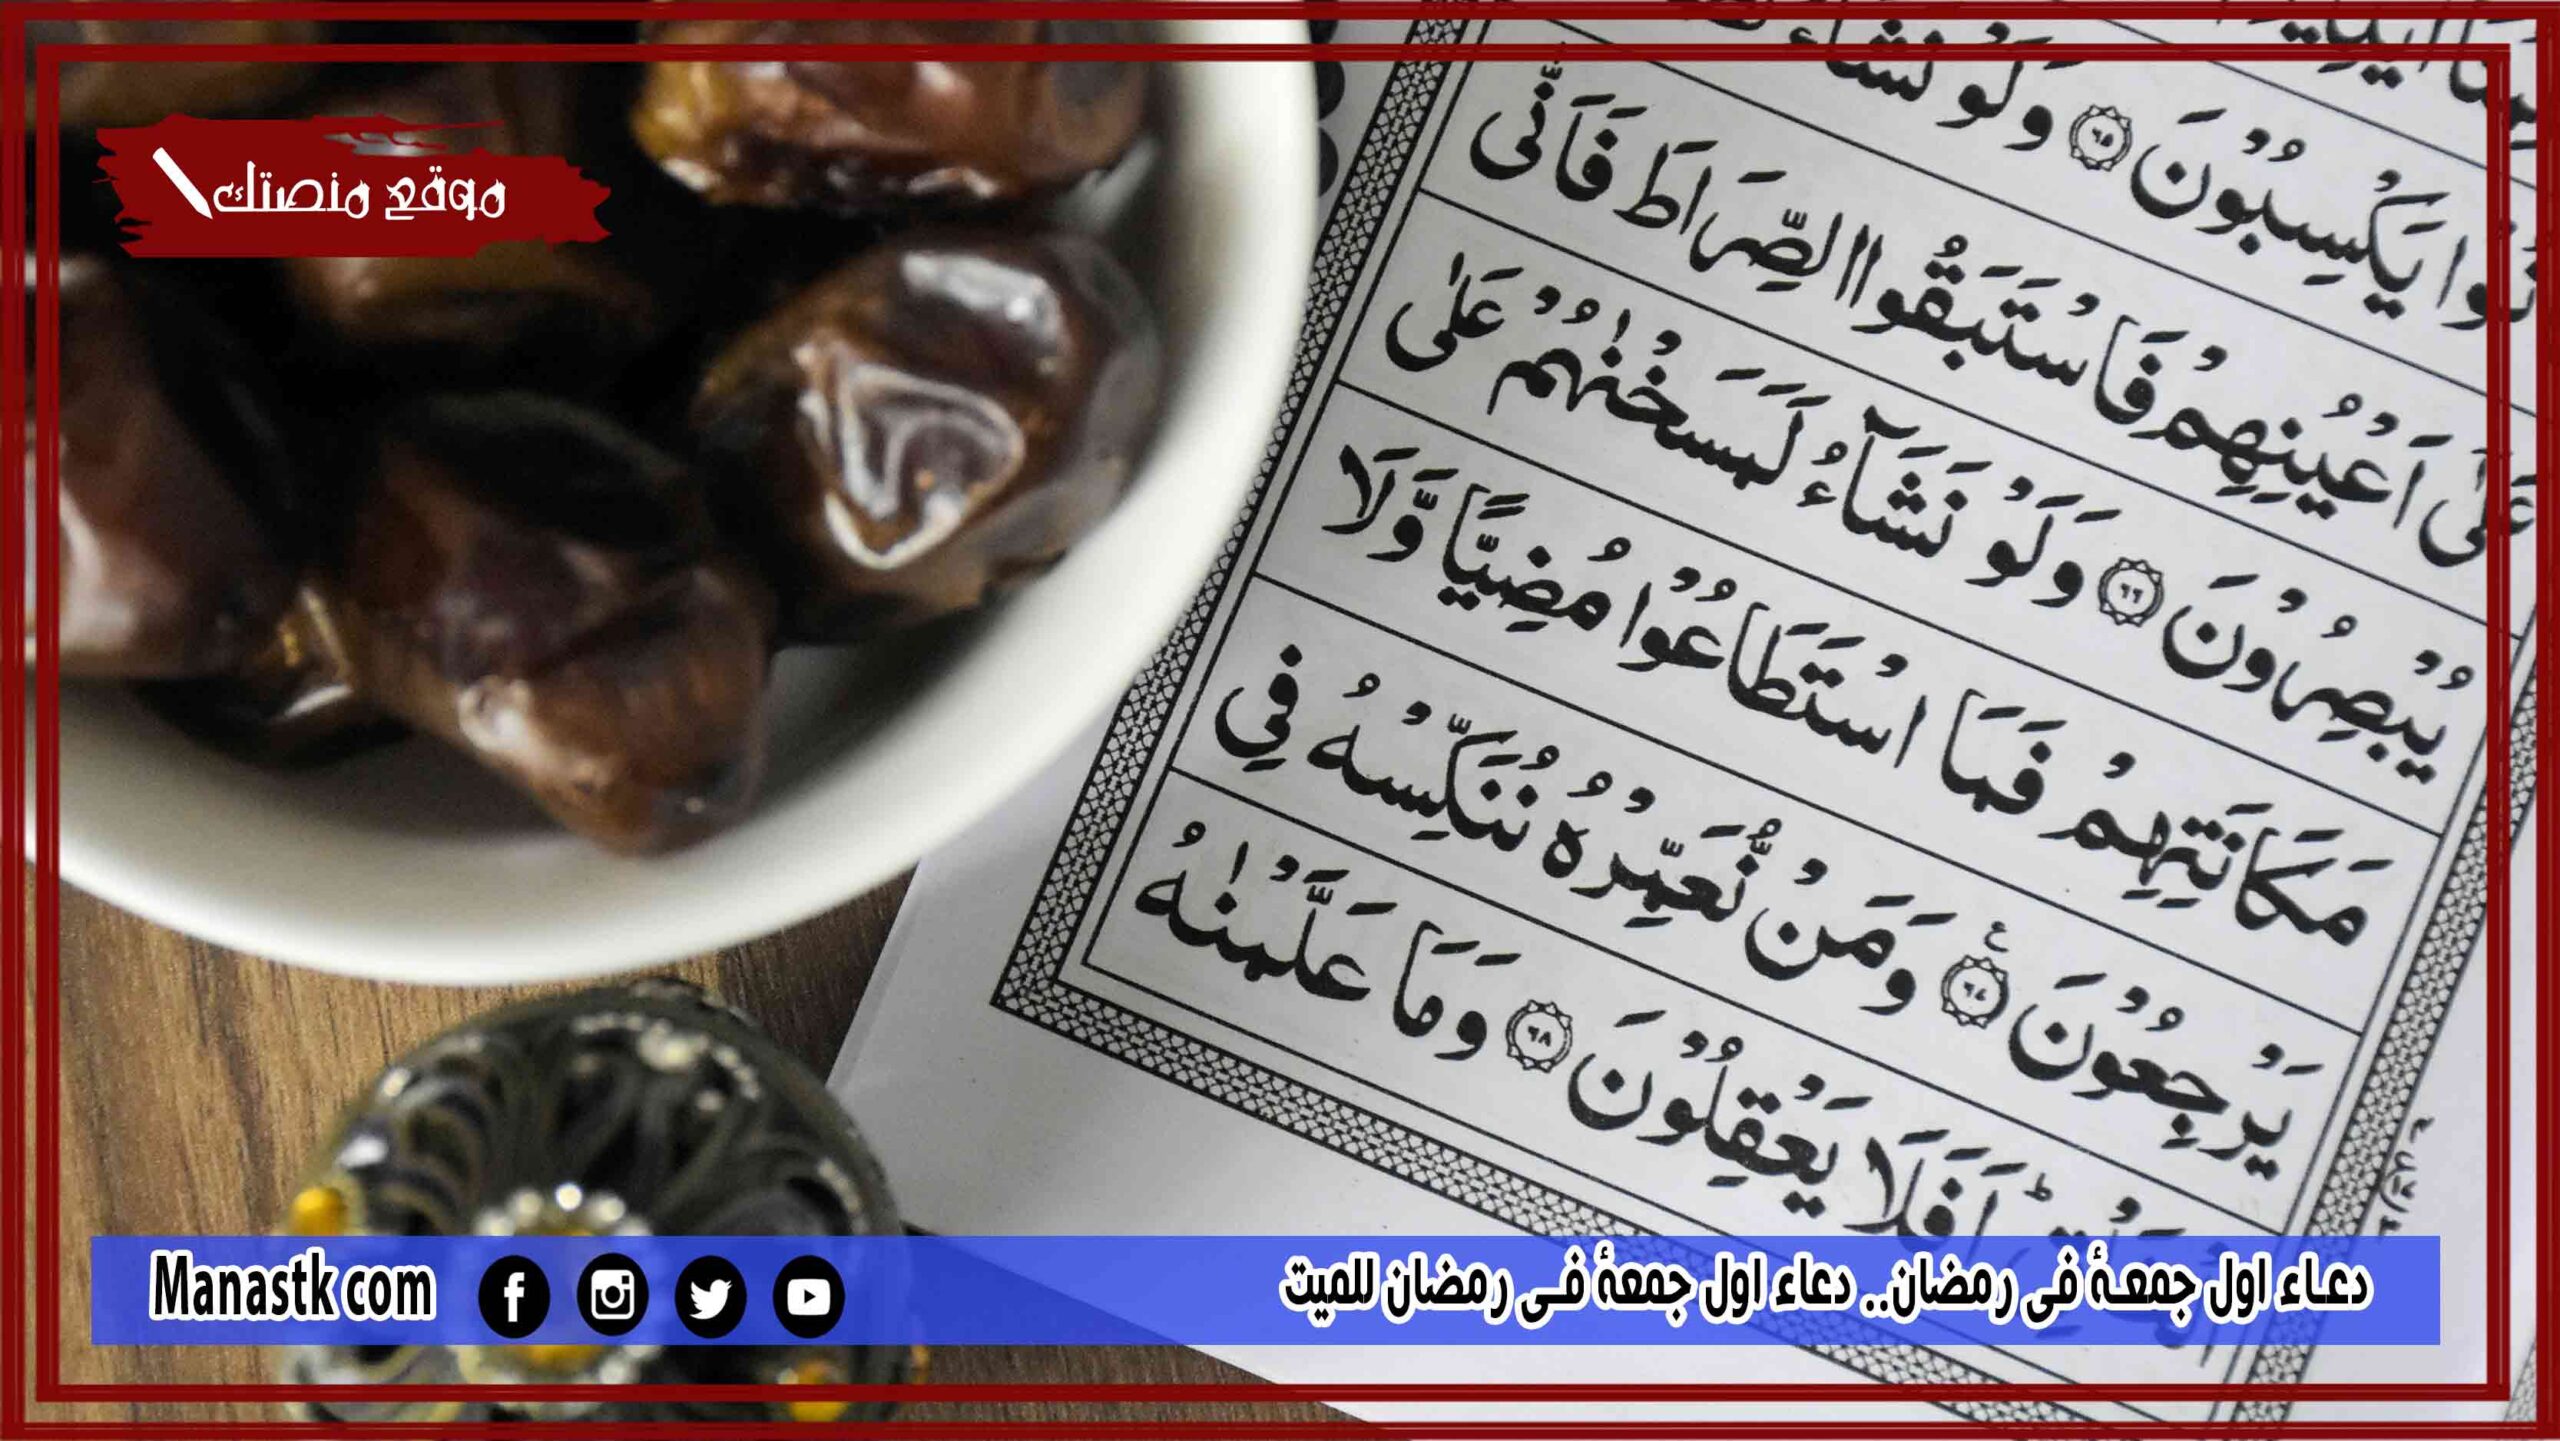 موقع منصتك
وَلَوْ نَشَآءُ
نُوْا يَكْسِبُوْنَ ٦٥ وَلَوْ نَشَآءُ
عَلٰٓى اَعْيُنِهِمْ فَاسْتَبَقُوا الصِّرَاطَ فَاَنّٰى
يُبْصِرُوْنَ ٦٦ وَلَوْ نَشَآءُ لَمَسَخْنٰهُمْ عَلٰى
مَكَانَتِهِمْ فَمَا اسْتَطَاعُوْا مُضِيًّا وَّلَا
يَرْجِعُوْنَ ٦٧ وَمَنْ نُّعَمِّرْهُ نُنَكِّسْهُ فِي
اَفَلَا يَعْقِلُوْنَ ٦٨ وَمَا عَلَّمْنٰهُ
دعاء اول جمعة في رمضان.. دعاء اول جمعة في رمضان للميت
Manastk com